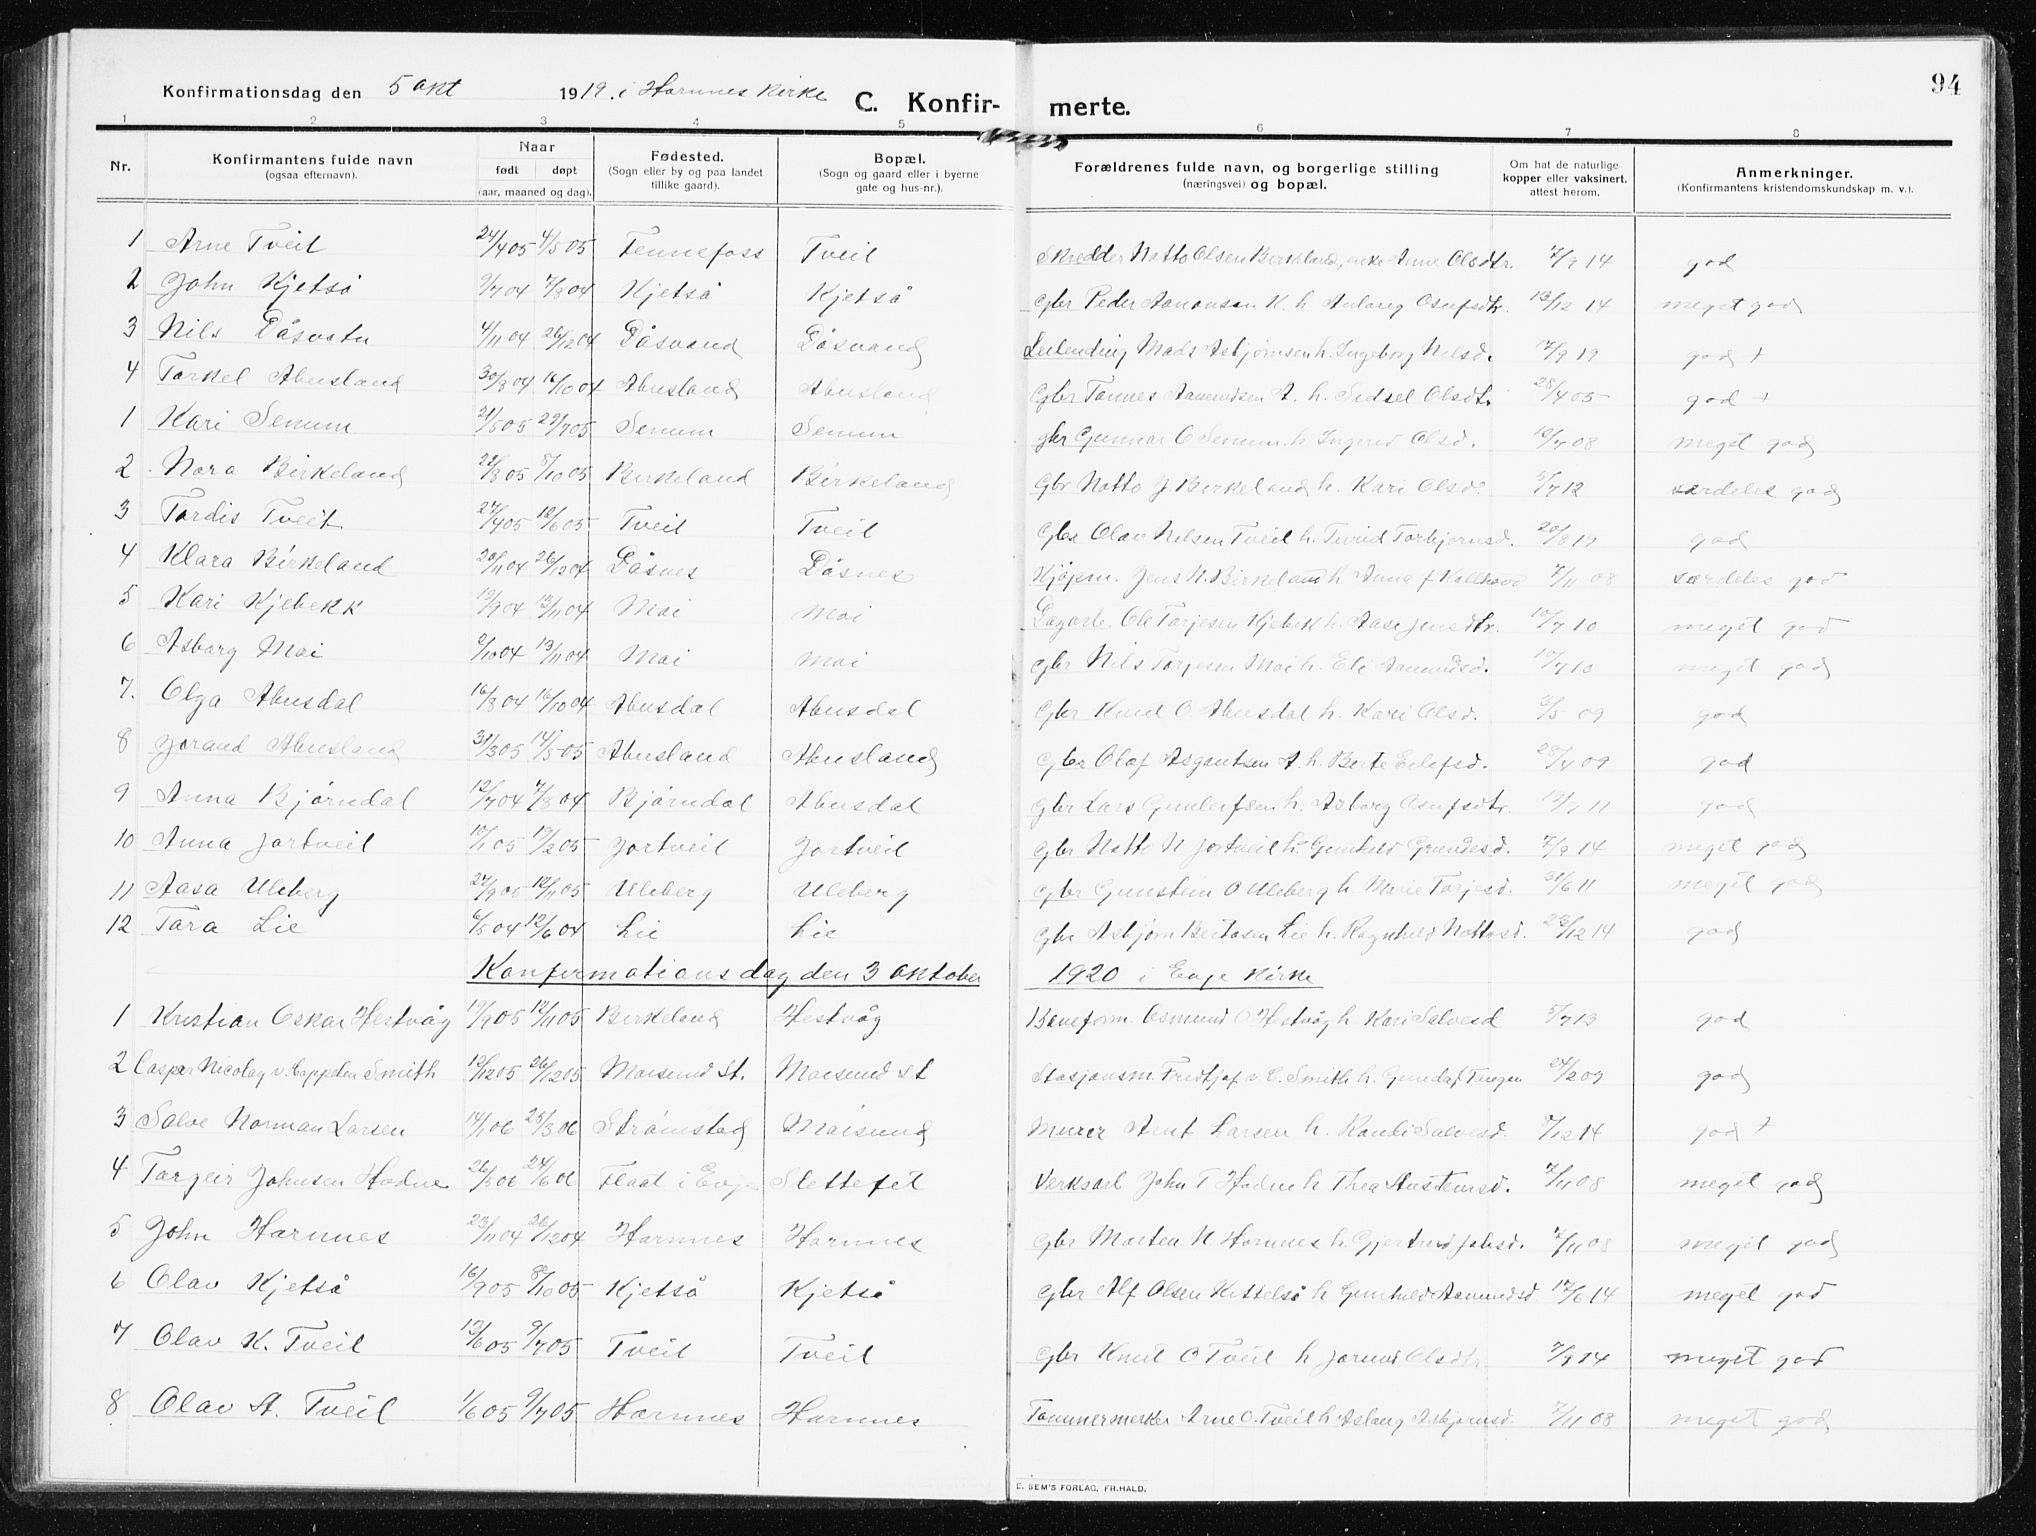 94
Konfirmationsdag den 5 okt 1919. i Hornnes kirke
C. Konfir- merte.
1 2 3 4 5 6 7 8
Nr. Konfirmantens fulde navn (ogsaa efternavn). Naar født døpt (aar, maaned og dag). Fødested. (Sogn eller by og paa landet tillike gaard). Bopæl. (Sogn og gaard eller i byerne gate og hus-nr.). Forældrenes fulde navn, og borgerlige stilling (næringsvei) og bopæl. Om hat de naturlige kopper eller vaksinert, attest herom. Anmerkninger. (Konfirmantens kristendomskundskap m. v.).
1 Arne Tveit 24/4 05 4/5 05 Fennefoss Tveit Skredder Notto Olsen Birkeland, enke Anne Olsdtr. 7/9 14 god
2 John Kjetså 9/7 04 7/8 04 Kjetså Kjetså Gbr Peder Aanonsen K. h. Aslaug Osufsdtr. 13/12 14 meget god
3 Nils Dåsvatn 4/11 04 26/12 04 Dåsvand Dåsvand Leilending Mads Asbjørnsen h. Ingeborg Nilsd. 17/9 19 god +
4 Torkel Abusland 30/8 04 16/10 04 Abusland Abusland Gbr Tonnes Aanundsen A. h. Sidsel Olsdtr. 28/4 05 god +
1 Kari Senum 21/5 05 29/7 05 Senum Senum gbr Gunnar O Senum h Ingerid Olsd. 10/7 08 meget god
2 Nora Birkeland 22/8 05 8/10 05 Birkeland Birkeland Gbr Notto J. Birkeland h. Kari Olsd. 5/7 12 særdeles god
3 Tordis Tveit 27/4 05 12/6 05 Tveit Tveit Gbr Olav Nilsen Tveit h. Turid Torbjørnsd. 20/8 19 god
4 Klara Birkeland 20/11 04 26/12 04 Dåsnes Dåsnes Kjøpm. Jens N. Birkeland h. Anna f 7/11 08 særdeles god
5 Kari Kjebekk 19/9 04 13/11 04 Moi Moi Dagarb. Ole Torjesen Kjebekk h. Aase Jensdtr. 10/7 10 meget god
6 Asborg Moi 2/10 04 13/11 04 Moi Moi Gbr Nils Torjesen Moi h. Eli Aanundsd. 10/7 10 meget god
7. Olga Abusdal 16/8 04 16/10 04 Abusdal Abusdal Gbr Knut O. Abusdal h. Kari Olsd. 3/5 09 god
8 Jorand Abusland 31/3 05 14/5 05 Abusland Abusland Gbr Olaf Asgautsen A. h. Berte Eilefsd. 28/4 09 god
9 Anna Bjørndal 12/7 04 7/8 04 Bjørndal Abusdal Gbr Lars Gunleifsen h. Asborg Osufsdtr. 13/7 11 god
10 Anna Jortveit 10/1 05 19/2 05 Jortveit Jortveit Gbr Notto N Jortveit h. Gunhild Gundersd. 7/9 14 meget god
11 Aasa Uleberg 27/9 05 12/11 05 Uleberg Uleberg Gbr Gunstein O Uleberg h Marie Torjesd. 31/6 11 meget god
12 Tara Lie 6/5 04 12/6 04 Lie Lie Gbr Asbjørn Bertosen Lie h. Ragnhild Nottosd. 23/12 14 god
Konfirmationsdag den 3 oktober 1920 i Evje kirke
1 Kristian Oskar Hestvåg 19/9 05 12/11 05 Birkeland Hestvåg Baneform. Osmund O Hestvåg h Kari Salvesd 5/7 13 god
2 Casper Nicolay v. Cappelen Smith 12/12 05 26/12 05 Moisund St. Moisund st Stasjonsm. Fredtjof v. C. Smith h. Gunda f. Tangen 24/2 09 god
3 Salve Norman Larsen 14/1 06 25/3 06 Strømstad Moisund Murer Arnt Larsen h. Randi Salvesd. 7/12 14 god +
4 Torgeir Johnsen Hodne 26/3 06 24/6 06 Flaat i Evje Slettefet Verksarb John T Hodne h Thea Austensd. 7/11 08 meget god
5 John Hornnes 23/11 04 26/12 04 Hornnes Hornnes Gbr Morten N Hornnes h. Gjertrud Johsd. 7/11 08 meget god
6 Olav Kjetså 16/9 05 8/10 05 Kjetså Kjetså Gbr Alf Olsen Kittelså h Gunhild Aanundsd 17/6 14 meget god
7 Olav K. Tveit 13/6 05 9/7 05 Tveit Tveit Gbr Knut O Tveit h Jorund Olsdtr. 7/9 14 meget god
8 Olav A. Tveit 1/6 05 9/7 05 Hornnes Hornnes Tømmermerker Arne O. Tveit h Aslaug Asbjørnsd. 7/11 08 meget god
E. SEM'S FORLAG, FR.HALD.